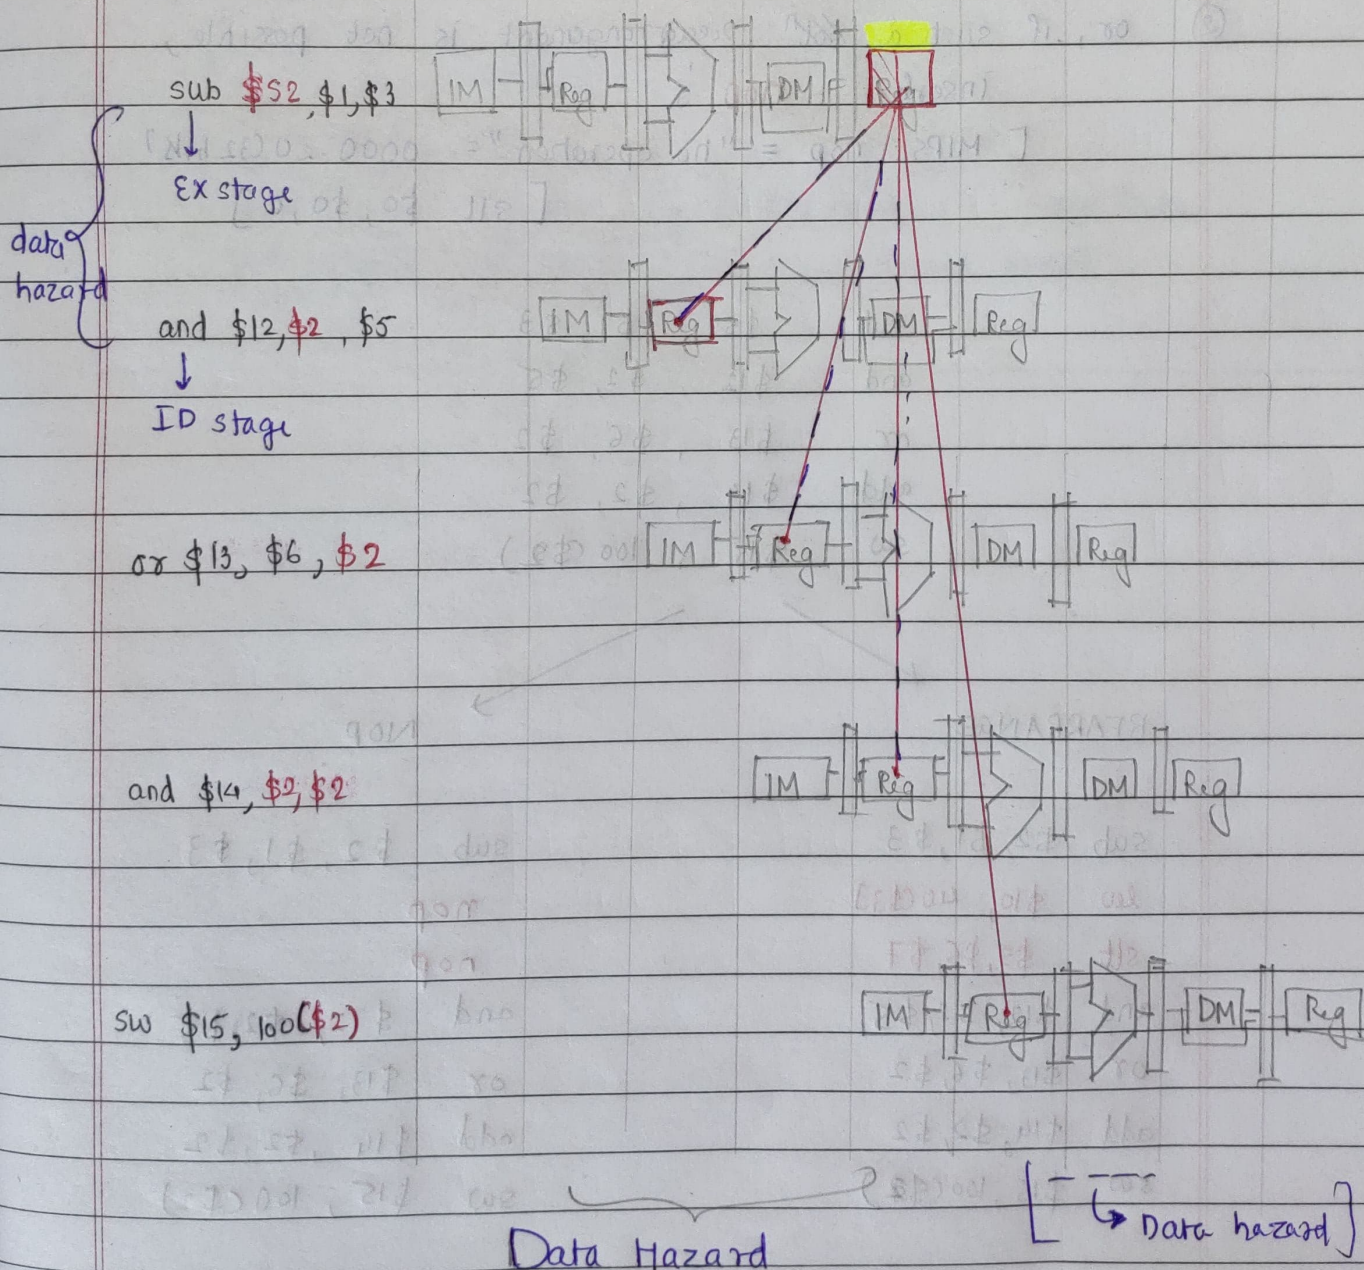 sub $52, $1, $3 IM Reg DM Reg
Ex stage
data
hazard
and $12, $2, $5 IM Reg DM Reg
ID stage
or $13, $6, $2 IM Reg DM Reg
and $14, $2, $2 IM Reg DM Reg
sw $15, 100($2) IM Reg DM Reg
Data Hazard
[--- Data hazard]